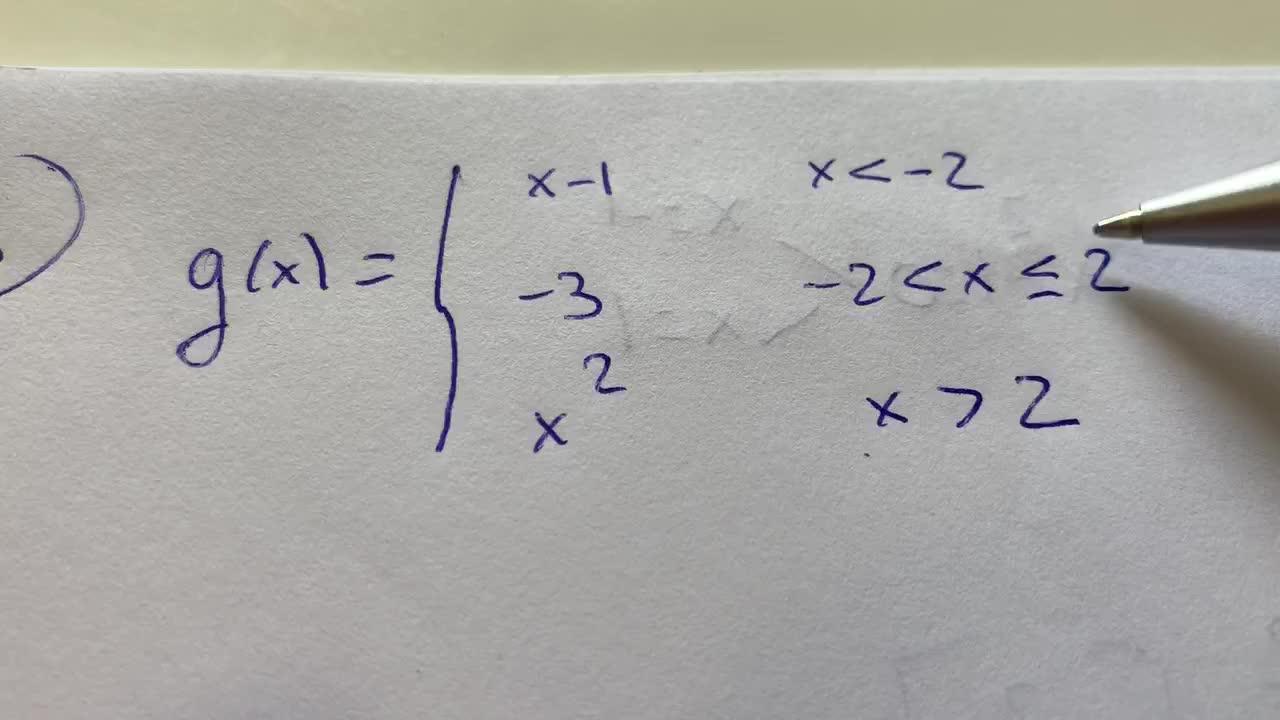 g(x) = { x-1 x < -2
-3 -2 < x ≤ 2
x² x > 2